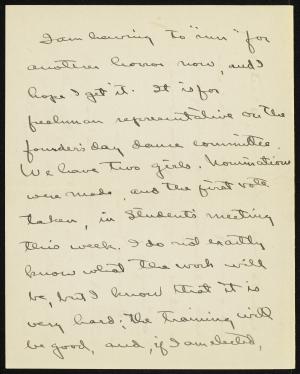 I am having to "run" for
another honor now, and I
hope I get it. It is for
freshman representative on the
founder's day dance committee.
We have two girls. Nominations
were made, and the first vote
taken, in Students' meeting
this week. I do not exactly
know what the work will
be, but I know that it is
very hard; the training will
be good, and, if I am elected,